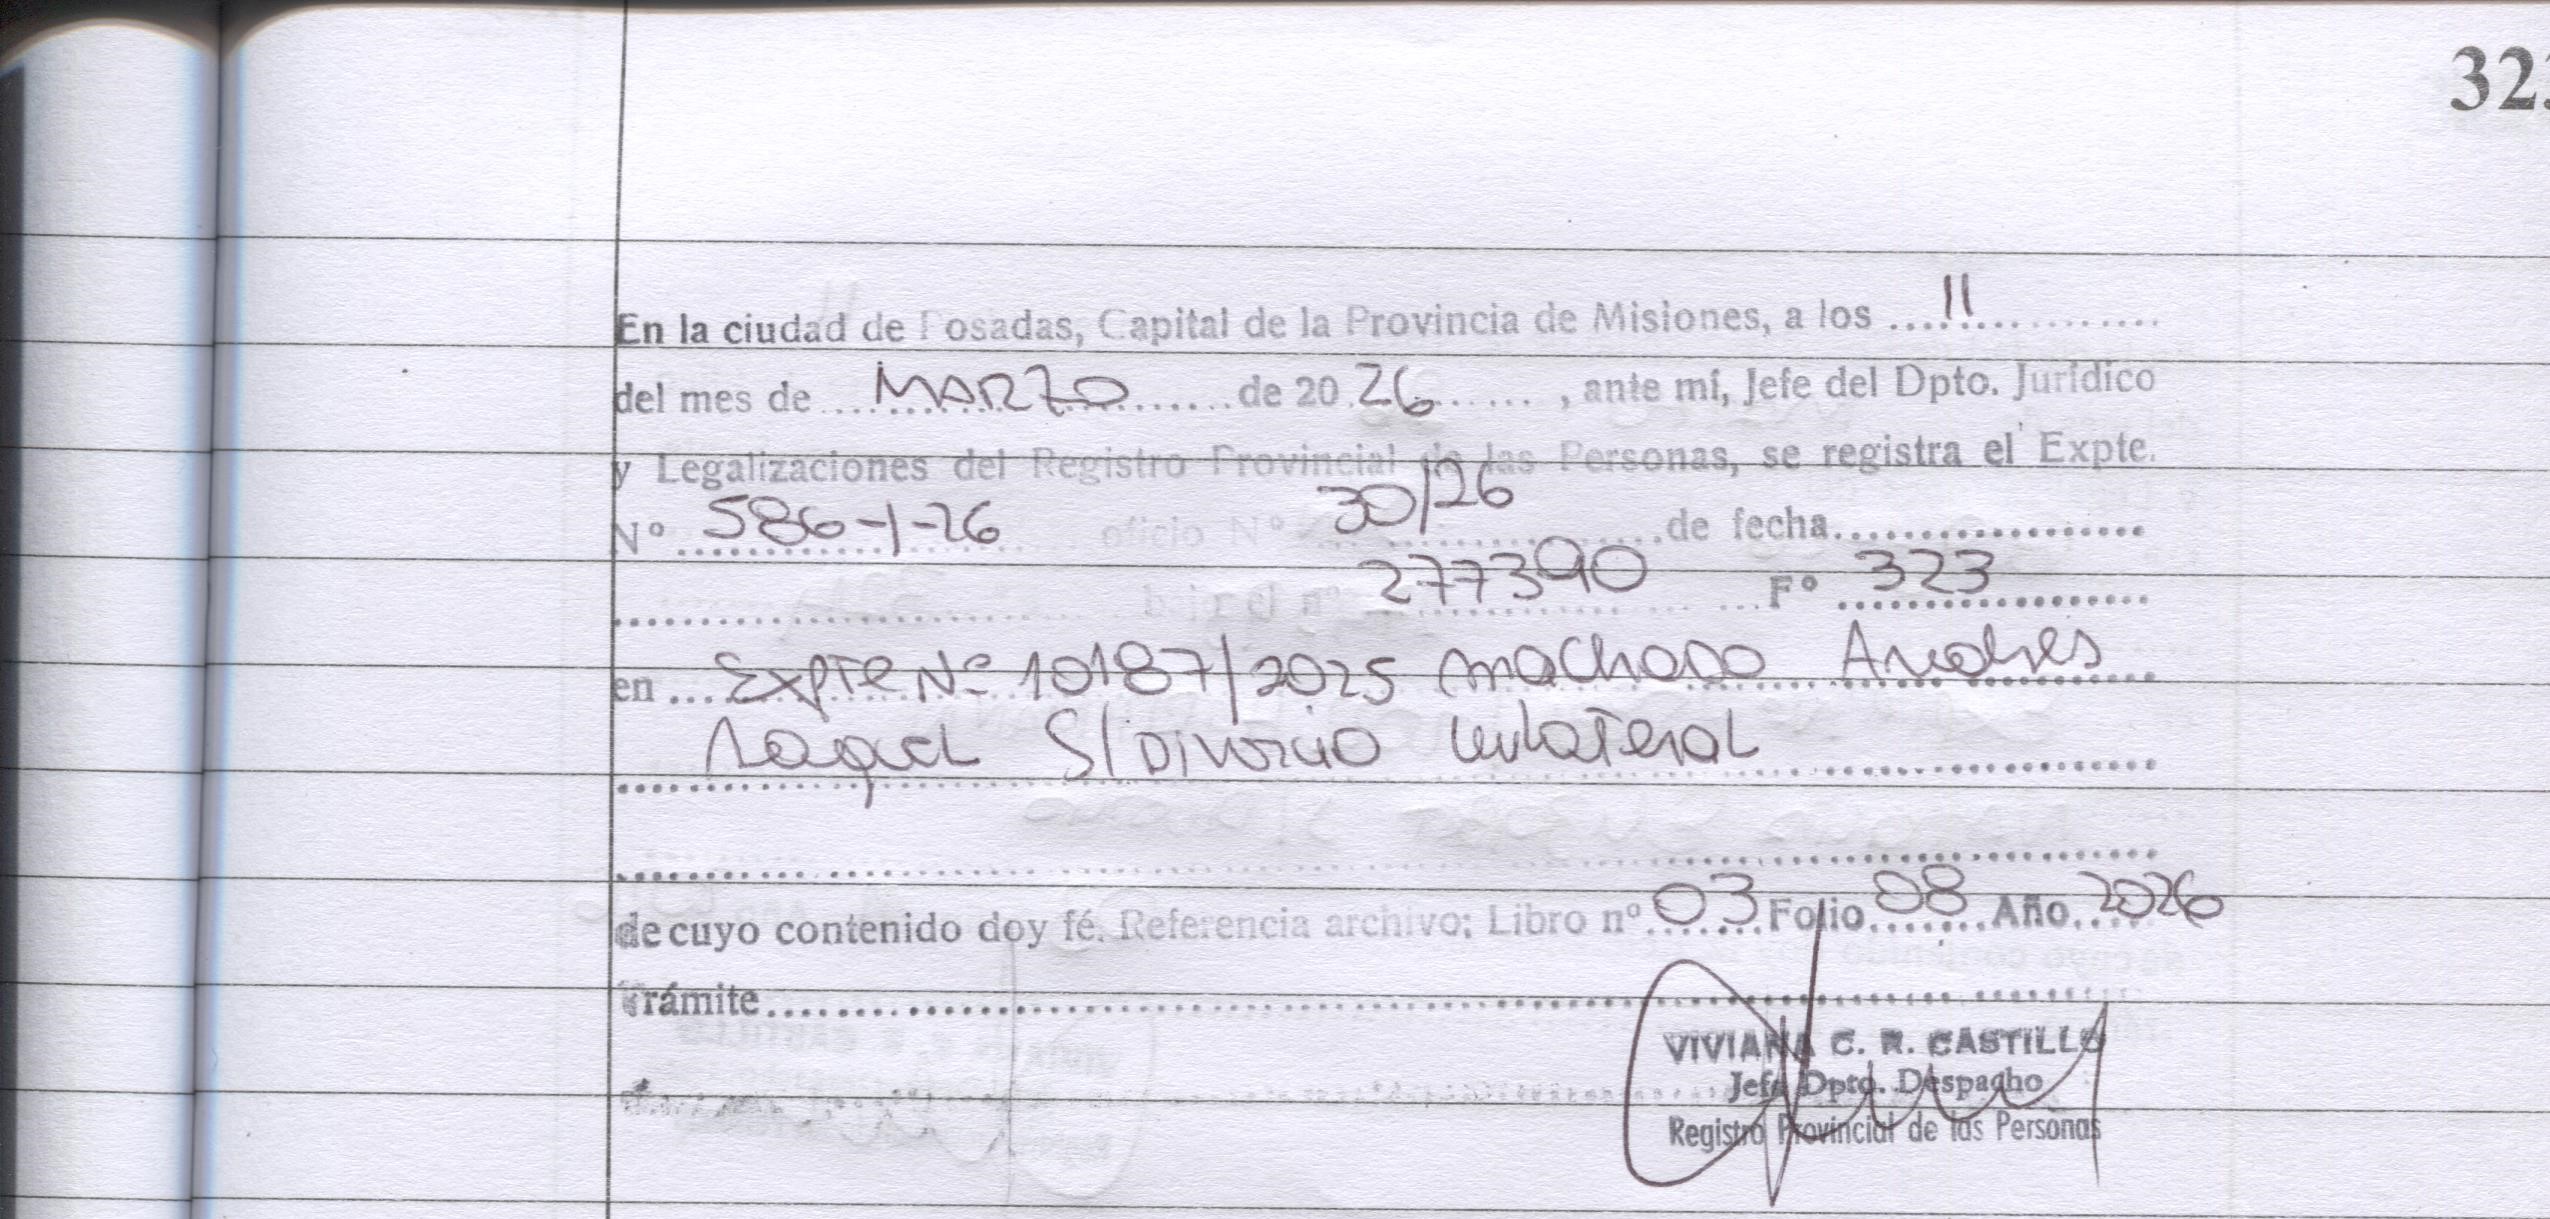 323
En la ciudad de Posadas, Capital de la Provincia de Misiones, a los ....11..............
del mes de ....MARZO.......... de 20 26 ....... , ante mí, Jefe del Dpto. Jurídico
y Legalizaciones del Registro Provincial de las Personas, se registra el Expte.
Nº 586-1-26 oficio Nº 30/26 de fecha...................
bajo el nº 277390 Fº 323
en ... Expte Nº 10187/2025 Machado Andres
Raquel S/Divorcio Unilateral
de cuyo contenido doy fé. Referencia archivo: Libro nº 03 Folio 08 Año 2026
Trámite
VIVIANA C. R. CASTILLO
Jefe Dpto. Despacho
Registro Provincial de las Personas